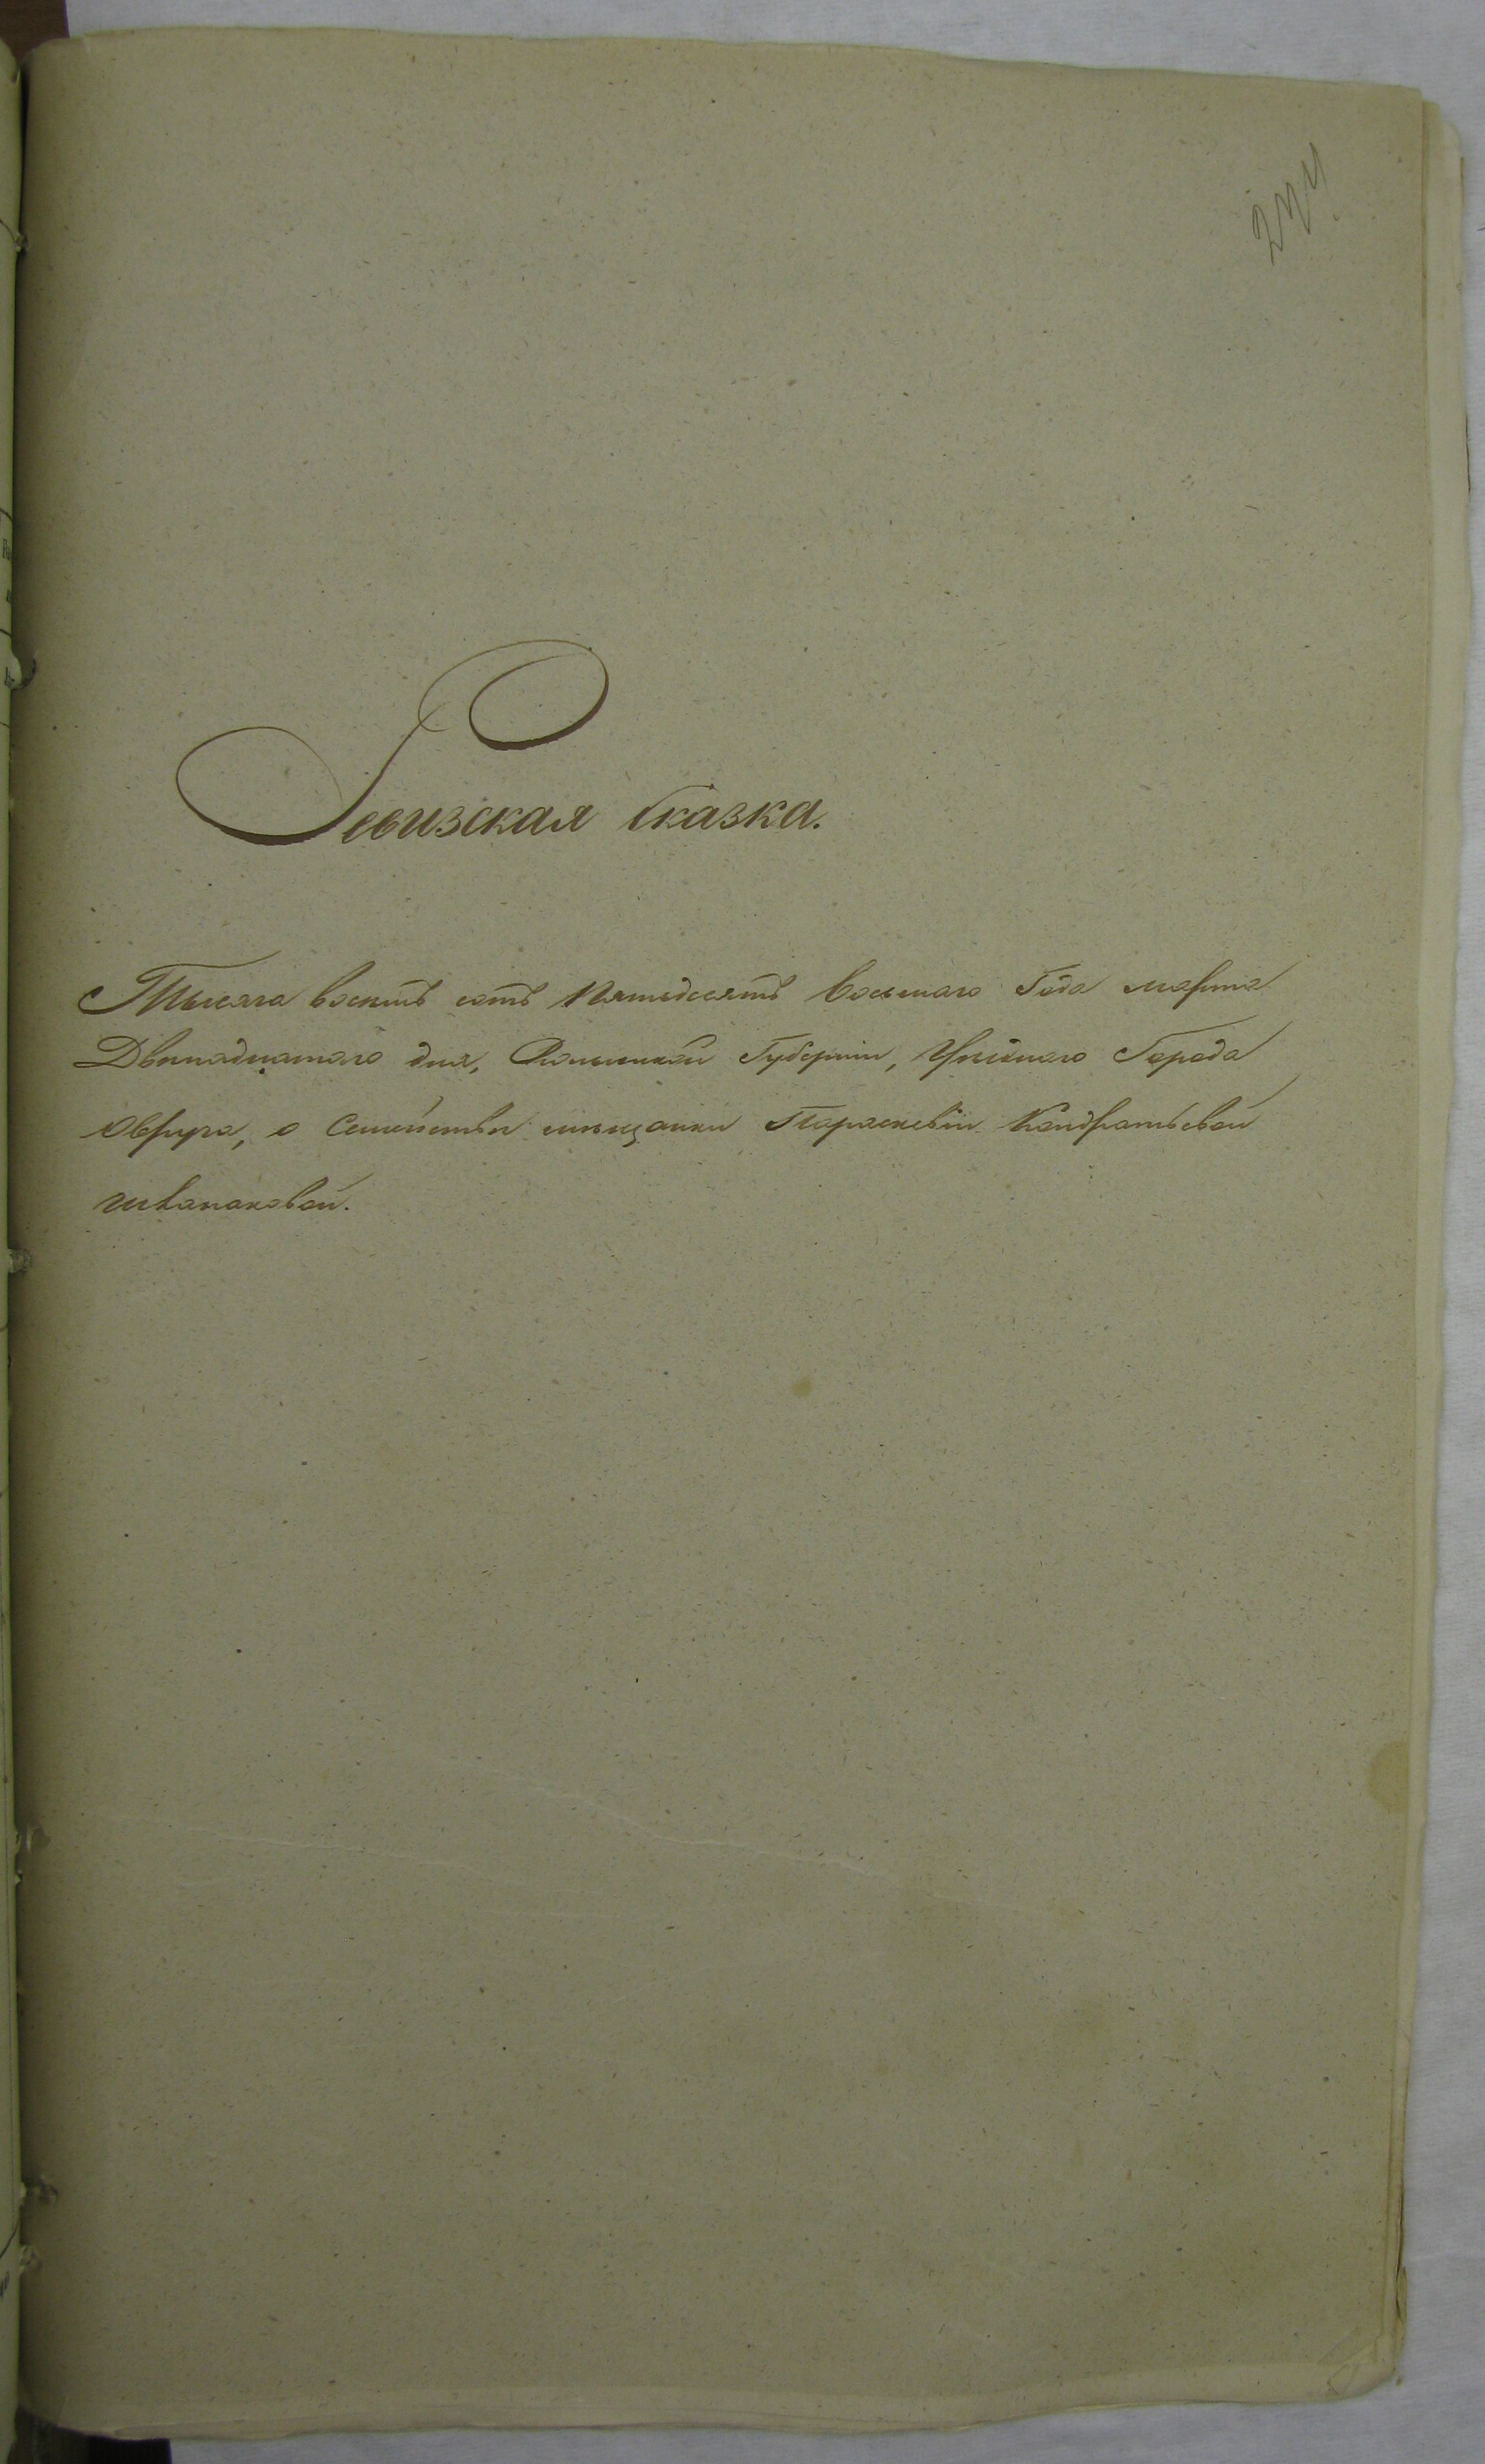 274
Ревизская Сказка.
Тысяча восемь сотъ Пятьдесятъ Восьмаго Года марта
Двѣнадцатаго дня, Волынской Губерніи, Уѣзднаго Города
Овруча, о Семействѣ мѣщанки Параскевіи Кондратьевой